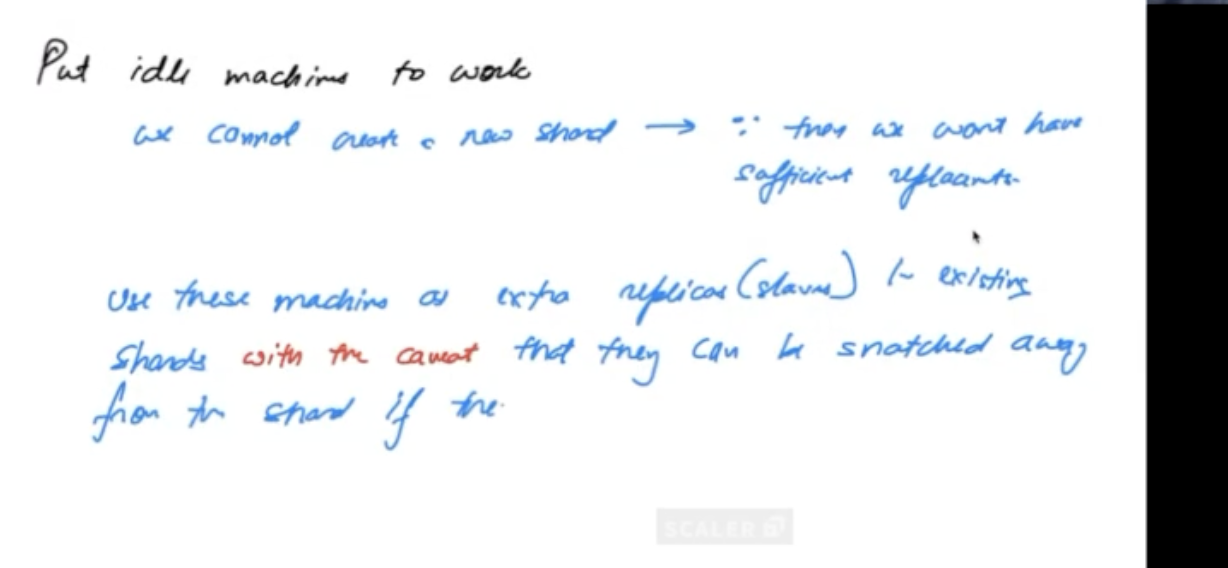 Put idle machines to work
we cannot create a new shard → ∵ then we wont have
sufficient replicants.
Use these machines as extra replicas (slaves) in existing
shards with the caveat that they can be snatched away
from the shard if the
SCALER